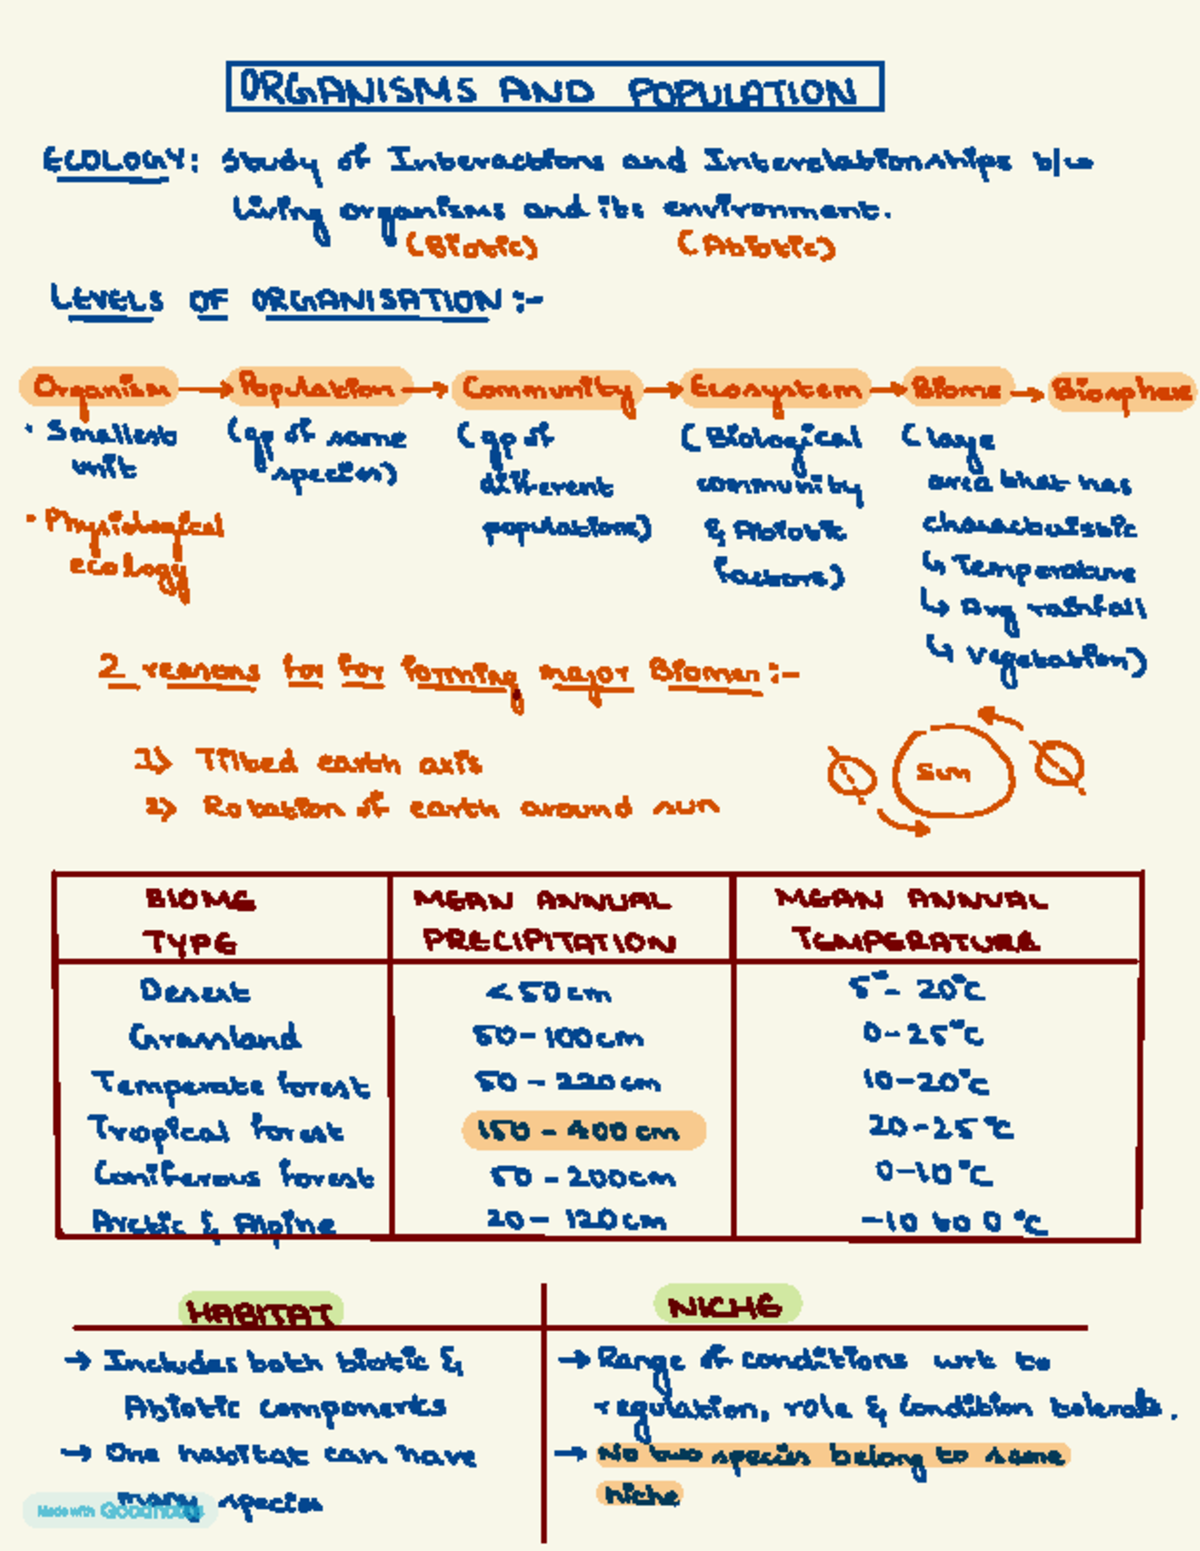 ORGANISMS AND POPULATION
ECOLOGY: Study of Interactions and Interrelationships b/w
living organisms and its environment.
(Biotic) (Abiotic)
LEVELS OF ORGANISATION :-
Organism → Population → Community → Ecosystem → Biome → Biosphere
• Smallest unit
(gp of same species)
(gp of different populations)
(Biological community & Abiotic factors)
(large area that has characteristic
↳ Temperature
↳ Avg rainfall
↳ vegetation)
• Physiological ecology
2 reasons for for forming major Biomes :-
1) Tilted earth axis
2) Rotation of earth around sun
Sun
BIOME TYPE | MEAN ANNUAL PRECIPITATION | MEAN ANNUAL TEMPERATURE
Desert <50 cm 5°- 20°C
Grassland 50-100cm 0-25°C
Temperate forest 50 - 220 cm 10-20°C
Tropical forest 150 - 400 cm 20-25°C
Coniferous forest 50 - 200cm 0-10°C
Arctic & Alpine 20 - 120 cm -10 to 0 °C
HABITAT
→ Includes both biotic &
Abiotic components
→ One habitat can have
many species
NICHE
→ Range of conditions wrt to
regulation, role & Condition tolerate.
→ No two species belong to same
niche
Made with Goodnotes